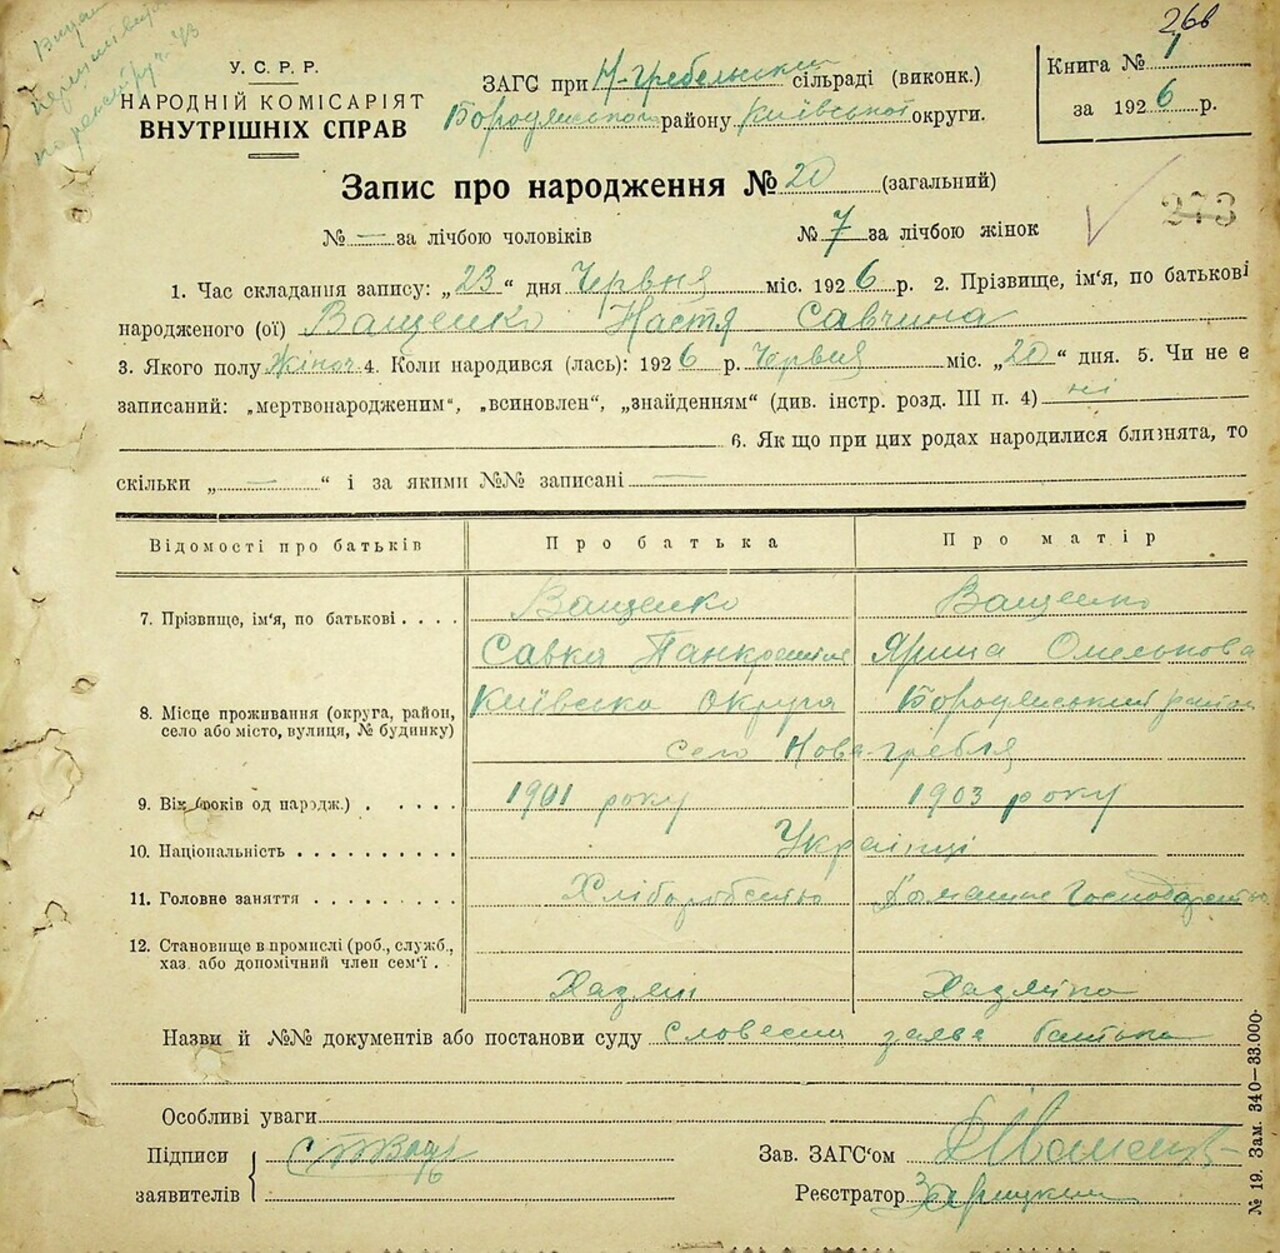 26в
У. С. Р. Р.
НАРОДНІЙ КОМІСАРІЯТ
ВНУТРІШНІХ СПРАВ
ЗАГС при Н-Гребельській сільраді (виконк.)
Бородянського району Київської округи.
Книга № 1
за 1926 р.
Запис про народження № 20 (загальний)
273
№ — за лічбою чоловіків № 7 за лічбою жінок
1. Час складання запису: „23“ дня Червня міс. 1926 р. 2. Прізвище, ім'я, по батькові
народженого (ої) Ващенко Настя Савчина
3. Якого полу Жіноч. 4. Коли народився (лась): 1926 р. Червня міс. „20“ дня. 5. Чи не є
записаний: „мертвонародженим“, „всиновлен“, „знайденням“ (див. інстр. розд. III п. 4) ні
6. Як що при цих родах народилися близнята, то
скільки „—“ і за якими №№ записані —
Відомості про батьків Про батька Про матір
7. Прізвище, ім'я, по батькові . . . . Ващенко Ващенко
Савка Панкратів Ярина Омелькова
8. Місце проживання (округа, район, село або місто, вулиця, № будинку) Київська Округа Бородянський район
село Нова-гребля
9. Вік (років од народж.) . . . . . 1901 року 1903 року
10. Національність . . . . . . . . . . Українці
11. Головне заняття . . . . . . . . . Хліборобство Домашнє Господарство
12. Становище в промислі (роб., служб.,
хаз. або допомічний член сем'ї .
Хазяїн Хазяйка
Назви й №№ документів або постанови суду Словесна заява батька
Особливі уваги
Підписи
заявителів
Зав. ЗАГС'ом
Реєстратор
№ 19. Зам. 340—33.000·